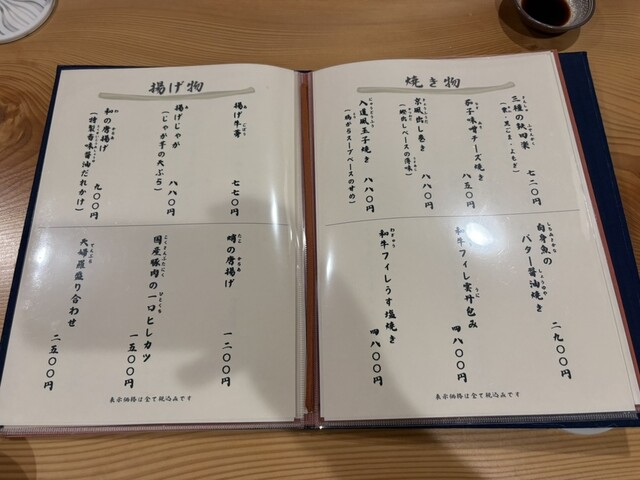 焼き物
三種の麩田楽
(粟・黒ごま・よもぎ)
七二〇円
茄子味噌チーズ焼き
八五〇円
京風出し巻き
(鰹出しベースの薄味)
八八〇円
入道風玉子焼き
(鶏がらスープベースの甘め)
八八〇円
白身魚の
バター醤油焼き
二九〇〇円
和牛フィレ雲丹包み
四八〇〇円
和牛フィレうす塩焼き
四八〇〇円
表示価格は全て税込みです
揚げ物
揚げ牛蒡
七七〇円
揚げじゃが
(じゃが芋の天ぷら)
八八〇円
和の唐揚げ
(特製香味醤油だれかけ)
九〇〇円
蛸の唐揚げ
一二〇〇円
国産豚肉の一口ヒレカツ
一五〇〇円
天婦羅盛り合わせ
二五〇〇円
表示価格は全て税込みです